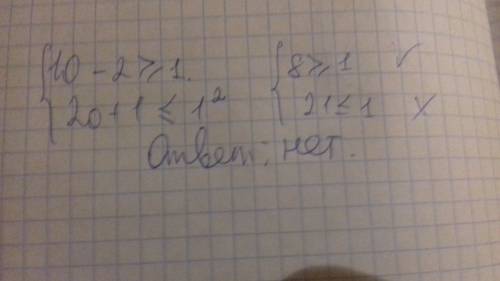 {10 - 2 ⩾ 1. {8 ⩾ 1 ✓
{20 + 1 ≤ 1² {21 ≤ 1 ✗
Ответ: нет.